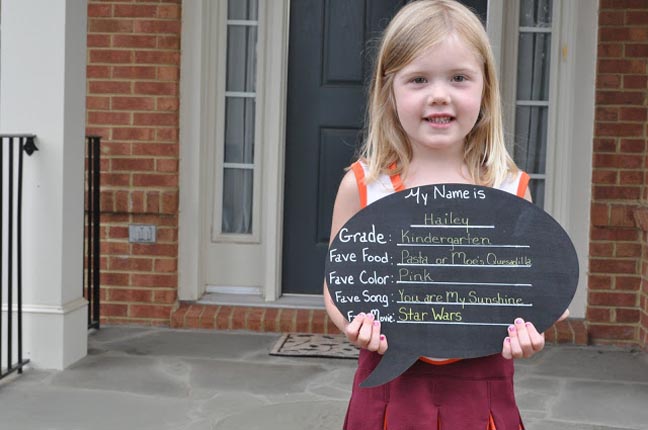 My Name is
Hailey
Grade: Kindergarten
Fave Food: Pasta or Moe's Quesadilla
Fave Color: Pink
Fave Song: You are My Sunshine
Fave Movie: Star Wars